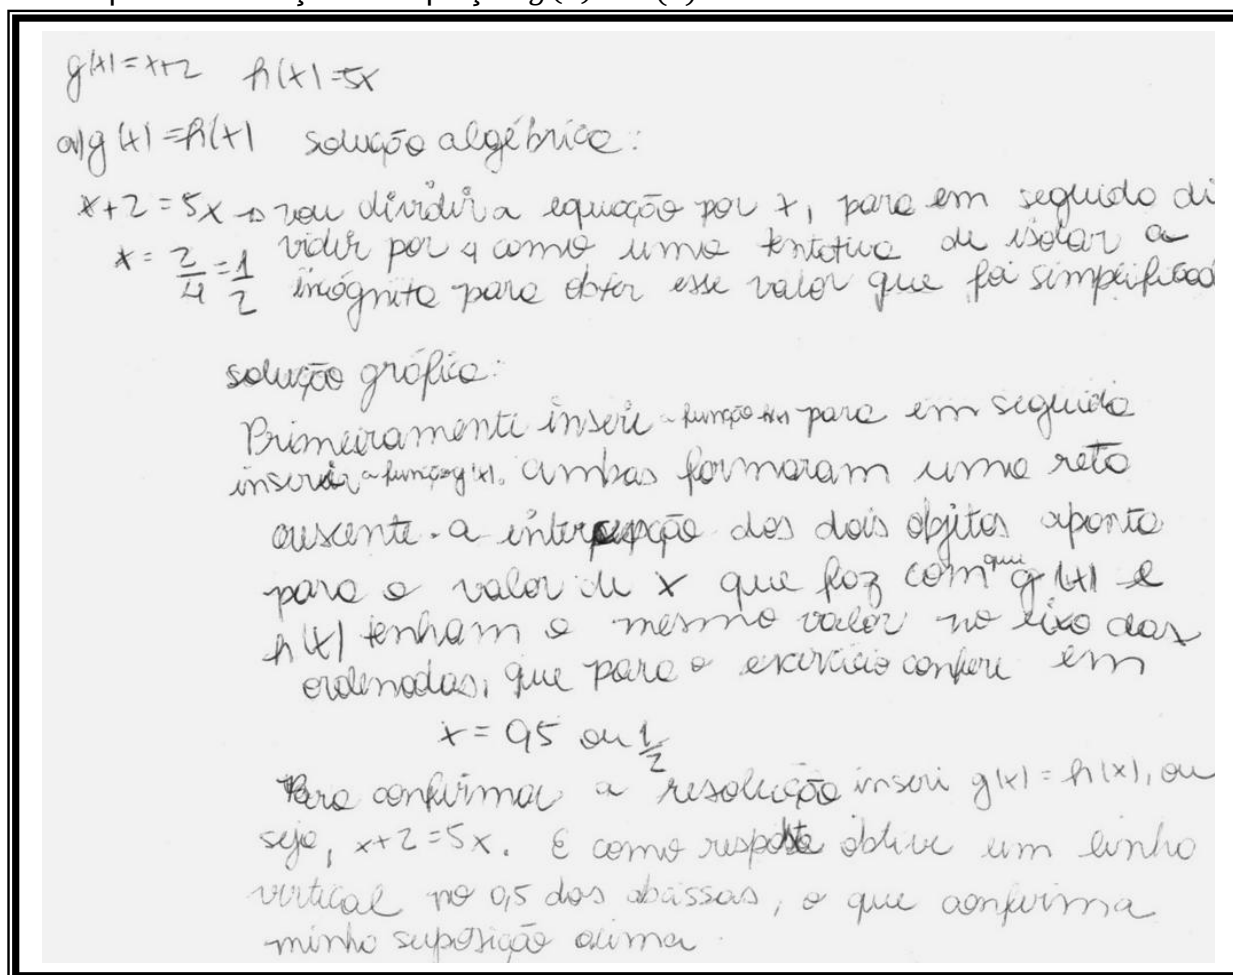 g(x)=x+2 h(x)=5x
a) g(x)=h(x) solução algébrica:
x+2=5x → vou dividir a equação por x, para em seguida di
x= 2/4 = 1/2 vidir por 4 como uma tentativa de isolar a
incógnita para obter esse valor que foi simplificado
solução gráfica:
Primeiramente inseri a função h(x) para em seguida
inserir a função g(x). ambas formaram uma reta
crescente. a intercepção dos dois objetos aponta
para o valor de x que faz com que g(x) e
h(x) tenham o mesmo valor no eixo das
ordenadas, que para o exercício confere em
x = 0,5 ou 1/2
Para confirmar a resolução inseri g(x) = h(x), ou
seja, x+2=5x. E como resposta obtive um linha
vertical no 0,5 das abcissas, o que confirma
minha suposição acima.